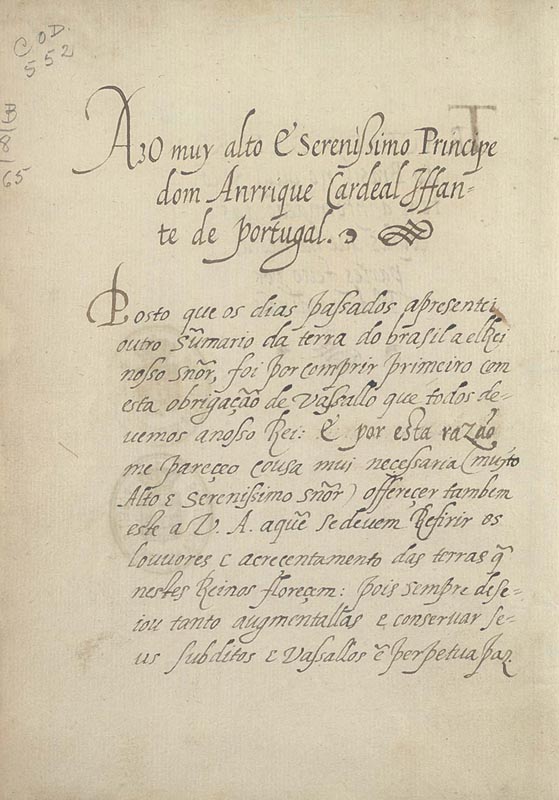 COD.
552
B
18
65
Ao muy alto & Serenissimo Principe
dom Anrrique Cardeal Iffan-
te de portugal.
Posto que os dias passados apresentei
outro Sũmario da terra do brasil a elRei
nosso snõr, foi por comprir primeiro com
esta obrigação de vassallo que todos de-
uemos a nosso Rei: E por esta razão
me pareçeo cousa mui necessaria (muyto
Alto e Serenissimo snõr) offereçer tambem
este a V. A. aquẽ se deuem Refirir os
louuores e acrecentamento das terras q̃
nestes Reinos floreçem: pois sempre dese-
iou tanto augmentallas e conseruar se-
us subditos e vassallos ẽ perpetua paz.